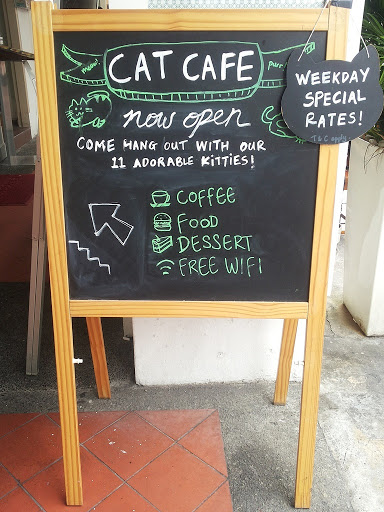 meow!
purr
CAT CAFE
now open
COME HANG OUT WITH OUR
11 ADORABLE KITTIES!
COFFEE
FOOD
DESSERT
FREE WIFI
WEEKDAY
SPECIAL
RATES!
T & C apply